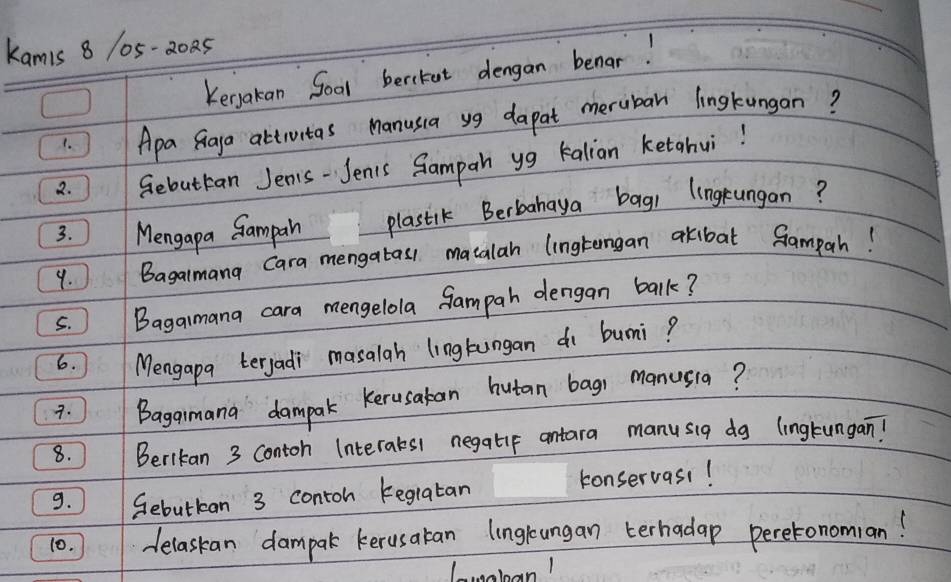 Kamis 8/05-2025
Kerjakan Soal berikut dengan benar!
1. Apa Saja aktivitas Manusia yg dapat merubah lingkungan?
2. Sebutkan Jenis-Jenis Sampah yg kalian ketahui!
3. Mengapa Sampah plastik Berbahaya bagi lingkungan?
4. Bagaimana cara mengatasi masalah lingkungan akibat Sampah!
5. Bagaimana cara mengelola Sampah dengan baik?
6. Mengapa terjadi masalah lingkungan di bumi?
7. Bagaimana dampak kerusakan hutan bagi manusia?
8. Berikan 3 contoh Interaksi negatif antara manusia dg lingkungan!
9. Sebutkan 3 contoh kegiatan konservasi!
10. Jelaskan dampak kerusakan lingkungan terhadap perekonomian!